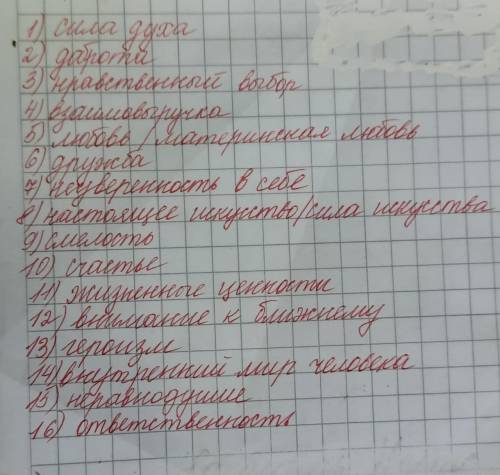 1) сила духа
2) доброта
3) нравственный выбор
4) взаимовыручка
5) любовь/материнская любовь
6) дружба
7) неуверенность в себе
8) настоящее искусство/сила искусства
9) смелость
10) счастье
11) жизненные ценности
12) внимание к ближнему
13) героизм
14) внутренний мир человека
15) неравнодушие
16) ответственность